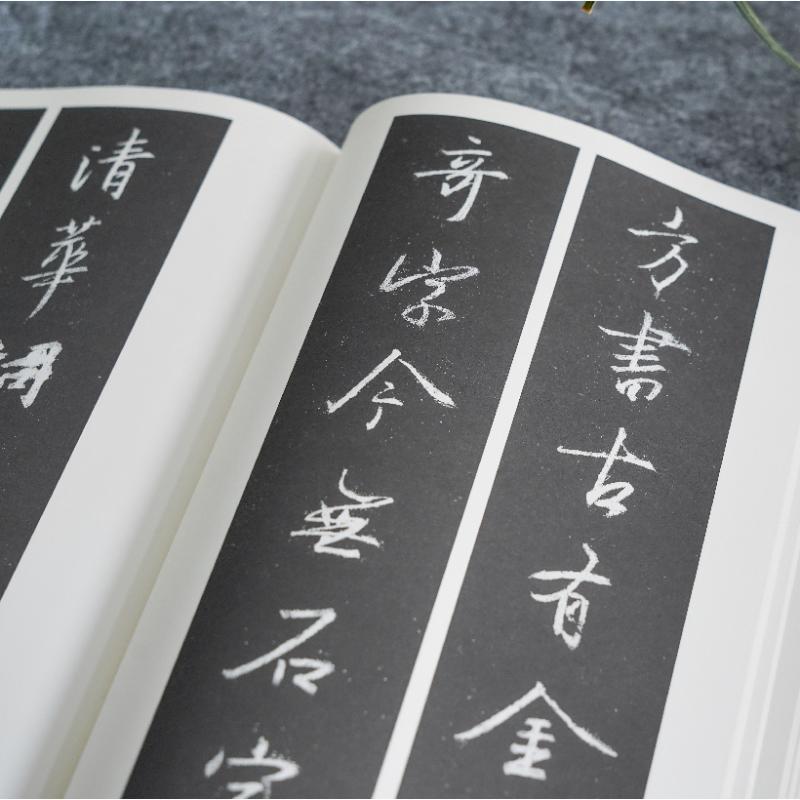 方書古有金
奇字今無石
清華